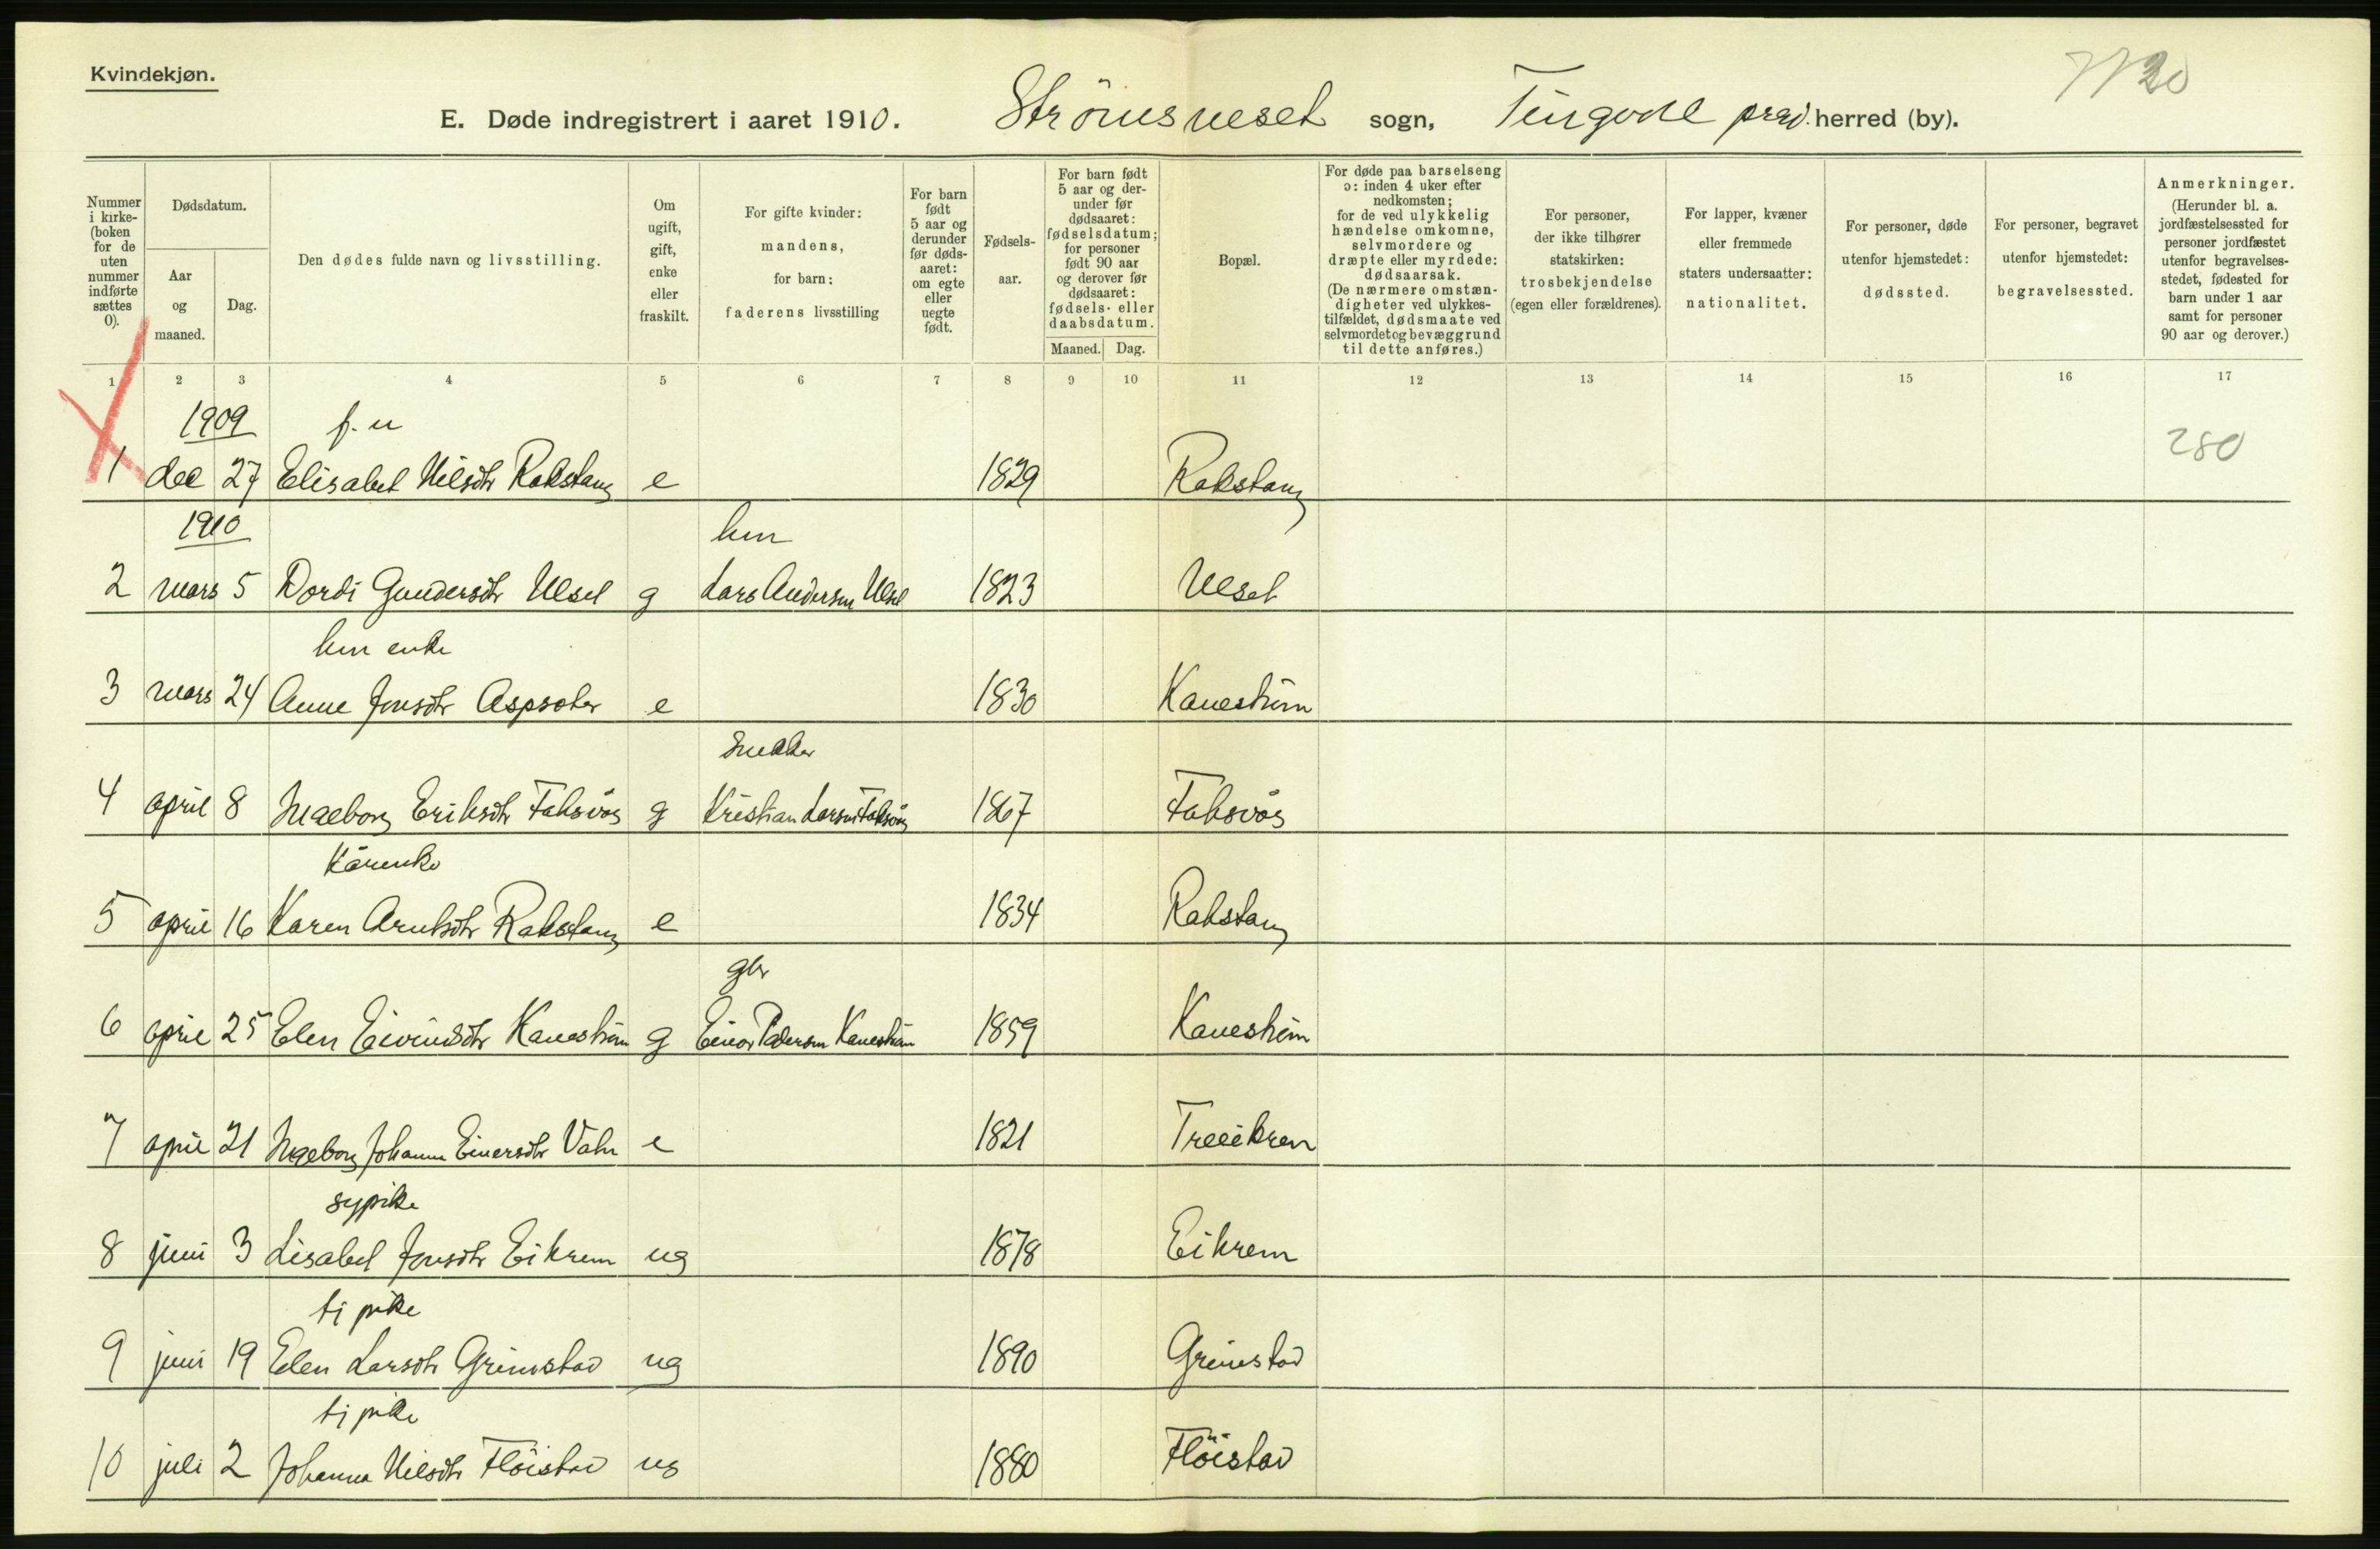 Kvindekjøn.
E. Døde indregistrert i aaret 1910. Strömsneset sogn, Tingvoll herred (by).
Nummer i kirkeboken (for de uten nummer indførte sættes 0).
Dødsdatum.
Aar og maaned.
Dag.
Den dødes fulde navn og livsstilling.
Om ugift, gift, enke eller fraskilt.
For gifte kvinder: mandens, for barn: faderens livsstilling
For barn født 5 aar og derunder før dødsaaret: om egte eller uegte født.
Fødselsaar.
For barn født 5 aar og derunder før dødsaaret: fødselsdatum; for personer født 90 aar og derover før dødsaaret: fødsels- eller daabsdatum.
Maaned. Dag.
Bopæl.
For døde paa barselseng ɔ: inden 4 uker efter nedkomsten; for de ved ulykkelig hændelse omkomne, selvmordere og dræpte eller myrdede: dødsaarsak. (De nærmere omstændigheter ved ulykkestilfældet, dødsmaate ved selvmordet og bevæggrund til dette anføres.)
For personer, der ikke tilhører statskirken: trosbekjendelse (egen eller forældrenes).
For lapper, kvæner eller fremmede staters undersaatter: nationalitet.
For personer, døde utenfor hjemstedet: dødssted.
For personer, begravet utenfor hjemstedet: begravelsessted.
Anmerkninger. (Herunder bl. a. jordfæstelsessted for personer jordfæstet utenfor begravelsesstedet, fødested for barn under 1 aar samt for personer 90 aar og derover.)
1 2 3 4 5 6 7 8 9 10 11 12 13 14 15 16 17
1909 f. u
280
1 dec 27 Elisabet Nilsdtr Rakstang e 1829 Rakstang
1910
2 mars 5 Dordi Gundersdtr Ulset g Lars Andersen Ulset 1823 Ulset
enke
3 mars 24 Anne Jonsdtr e 1830 Kaneström
Snekker
4 april 8 Ingeborg Eriksdtr Faksvåg g Kristian Larsen Faksvåg 1867 Faksvåg
Kårenke
5 april 16 Karen Arntsdtr Rakstang e 1834 Rakstang
gbr
6 april 25 Elen Eivindsdtr Kaneström g Einar Pedersen Kaneström 1859 Kaneström
7 april 21 Ingeborg Johanna Einersdtr e 1821
sypike
8 juni 3 Lisabet Jonsdtr Eikrem ug 1878 Eikrem
tj pike
9 juni 19 Elen Larsdtr Grimstad ug 1890 Grimstad
tj pike
10 juli 2 Johanna Nilsdtr Flöistad ug 1880 Flöistad